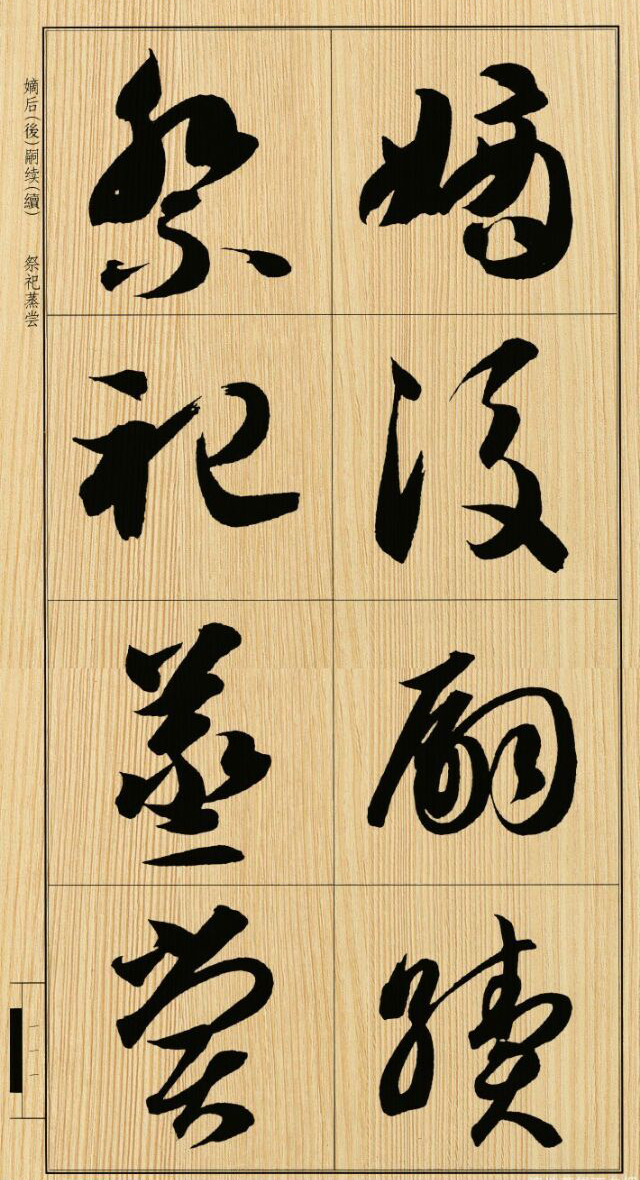 嫡後嗣續
祭祀蒸嘗
嫡后(後)嗣续(續) 祭祀蒸尝